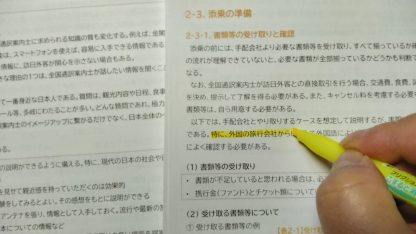 国通訳案内士に求められる知識の質も変化する。例えば、
はスマートフォンを使えば、容易に入手できる情報である
情報に、訪日外客が関心を示さない場合もある。
きな理由の1つは、全国通訳案内士が話したい情報を聞くこ
て一番身近な日本人である。質問は、観光内容や日程、食事
ール等、多岐にわたることが多い。どんな質問であれ、極力
訳案内士のイメージアップに繋がるだけでなく、日本全体の
説明ができるように備える。特に、現代の日本の社会や
を見せて親近感を持っていただくのは効果的
験をしてみるとよい。その感想をもとに説明ができる
アンテナを張り、情報として入手しておく。流行や最新の
本についての情報など
2-3. 添乗の準備
2-3-1. 書類等の受け取りと確認
添乗の前には、手配会社より必要な書類等を受け取り、すべて揃っているか確
の流れが理解できていないと、必要な書類が全部揃っているかどうかも判断で
る。
なお、全国通訳案内士が訪日外客との直接取引を行う場合、交通費、食費、
を決め、提示して了解を得る必要がある。また、キャンセル料を考慮する必要
書類等は、自ら用意する必要がある。
以下では、手配会社とやり取りするケースを想定して説明するが、
である。特に、外国の旅行会社から
よく確認する必要がある。
(1) 書類等の受け取り
・ 書類が不足していると思われる場合は、必
・ 携行金(ファンド)とチケット類につい
(2) 受け取る書類等について
① 受け取る書類等の例